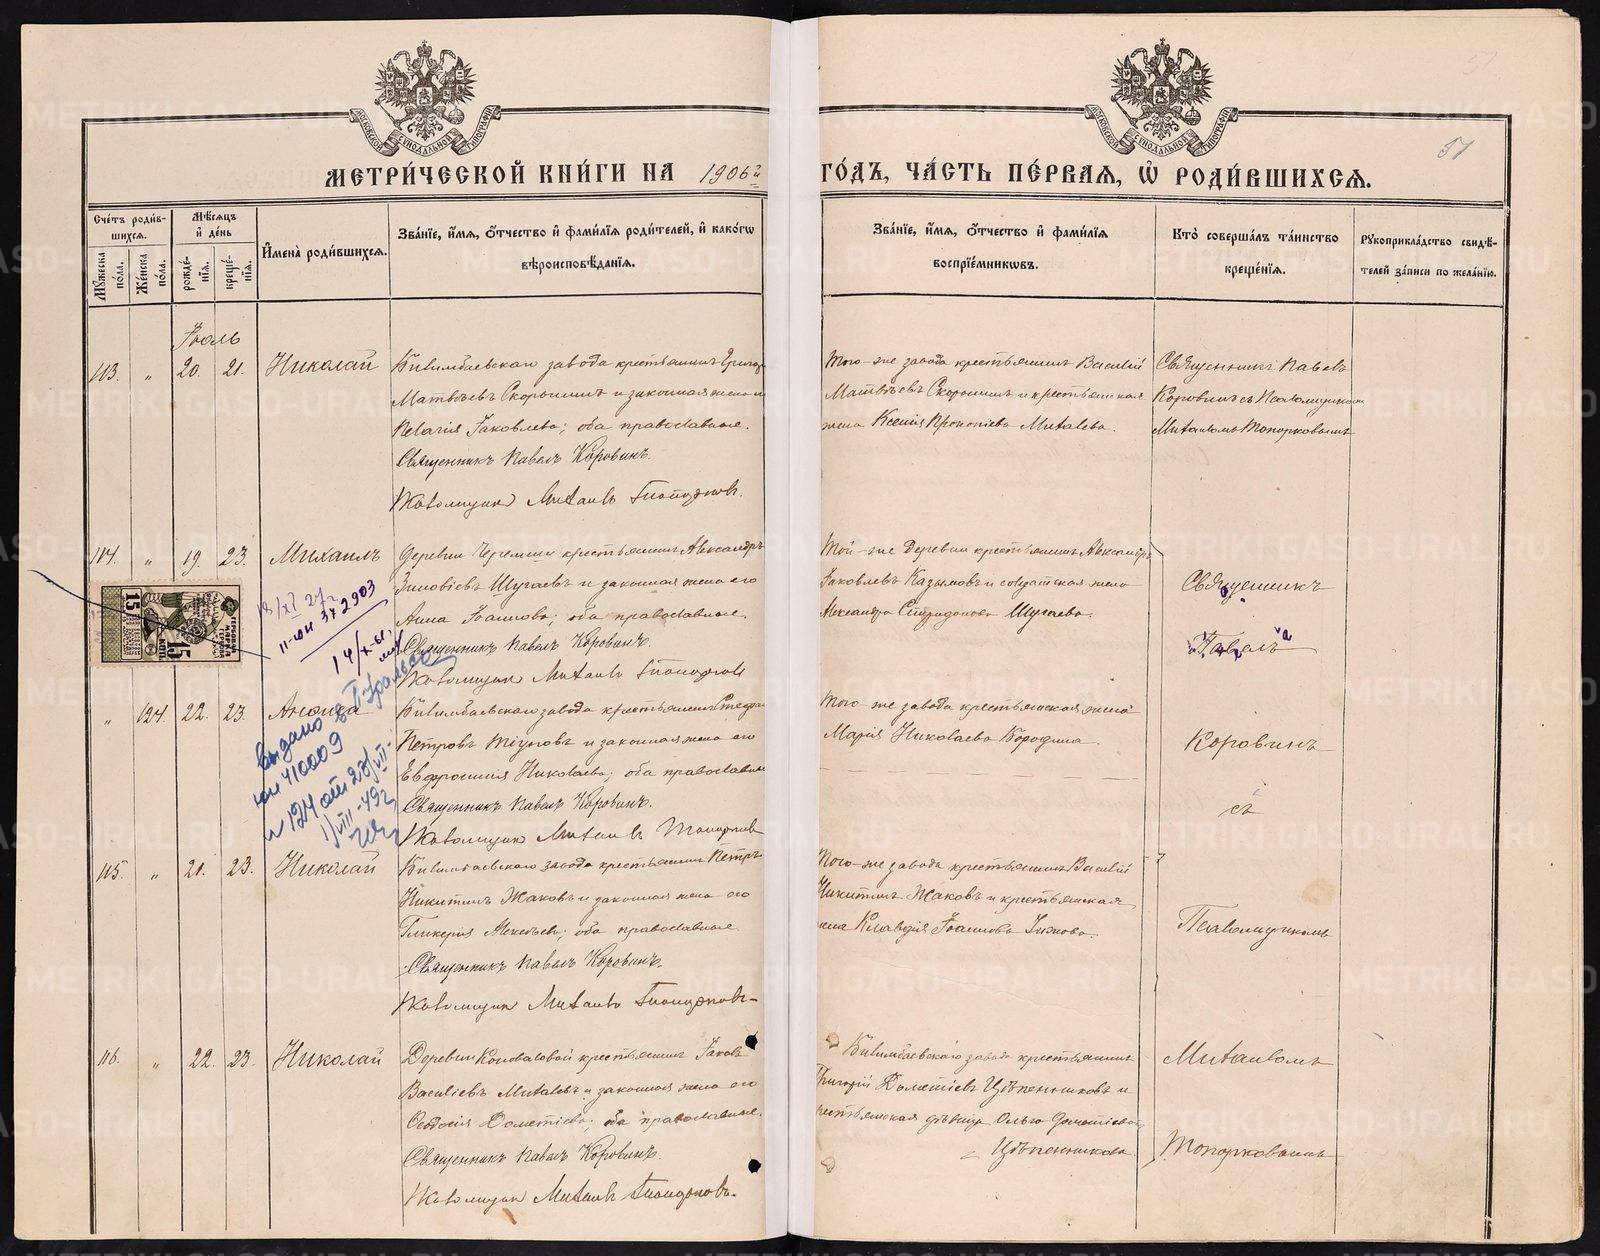 МЕТРИ́ЧЕСКОЙ КНИ́ГИ НА 1906й ГО́ДЪ, ЧА́СТЬ ПЕ́РВАЯ, Ѡ РОДИ́ВШИХСЯ.
51
Сче́тъ роди́в-
шихся.
Мꙋ́жеска по́ла.
Же́нска по́ла.
Мѣ́сяцъ и҆ де́нь
рожде́-
нїя.
креще́-
нїя.
И҆мена̀ роди́вшихся.
Зва́нїе, и҆́мя, ѻ҆́тчество и҆ фами́лїя роди́телей, и҆ како́гѡ
вѣроисповѣ́данїя.
Зва́нїе, и҆́мя, ѻ҆́тчество и҆ фами́лїя
воспрїе́мникѡвъ.
Кто̀ соверша́лъ та́инство
креще́нїя.
Рꙋкоприкла́дство свидѣ́-
телей за́писи по жела́нїю.
Іюль
113. „ 20. 21. Николай
Билимбаевскаго завода крестьянинъ Григор
Матвѣевъ Скорынинъ и законная жена
Пелагія Іаковлева; оба православные.
Священникъ Павелъ Коровинъ.
Псаломщикъ Михаилъ Топорковъ.
Того-же завода крестьянинъ Василій
Матвѣевъ Скорынинъ и крестьянская
жена Ксенія Прокопіева Михалева.
Священникъ Павелъ
Коровинъ съ Псаломщикомъ
Михаиломъ Топорковымъ
114. „ 19. 23. Михаилъ
Деревни Черемши крестьянинъ Александръ
Зиновіевъ Шугаевъ и законная жена его
Анна Іоаннова; оба православные.
Священникъ Павелъ Коровинъ.
Псаломщикъ Михаилъ Топорковъ
Той-же Деревни крестьянинъ Александръ
Іаковлевъ Казымовъ и солдатская жена
Александра Спиридонова Шугаева.
372903
15
„ 124. 22. 23. Анна
Билимбаевскаго завода крестьянинъ
Петровъ и законная жена его
Евфросинія Николаева; оба православные
Священникъ Павелъ Коровинъ.
Псаломщикъ Михаилъ Топорковъ
Того-же завода крестьянская жена
Марія Николаева Бородина.
выдано
410009
н 124 от
115. „ 21. 23. Николай
Билимбаевскаго завода крестьянинъ Петръ
Никитинъ Жаковъ и законная жена его
Гликерія Алексѣева; оба православные
Священникъ Павелъ Коровинъ.
Псаломщикъ Михаилъ Топорковъ
Того-же завода крестьянинъ Василій
Никитинъ Жаковъ и крестьянская
жена Клавдія Іоаннова
116. „ 22. 23. Николай
Деревни Коноваловой крестьянинъ Іаковъ
Василіевъ Михалевъ и законная жена его
Ѳеодосія Дометіева; оба православные.
Священникъ Павелъ Коровинъ.
Псаломщикъ Михаилъ Топорковъ.
Билимбаевскаго завода крестьянинъ
Григорій Дометіевъ Цѣпенниковъ и
крестьянская дѣвица Ольга Дометіева
Цѣпенникова.
Священникъ
Павелъ
Коровинъ
съ
Псаломщикомъ
Михаиломъ
Топорковымъ
METRIKI.GASO-URAL.RU